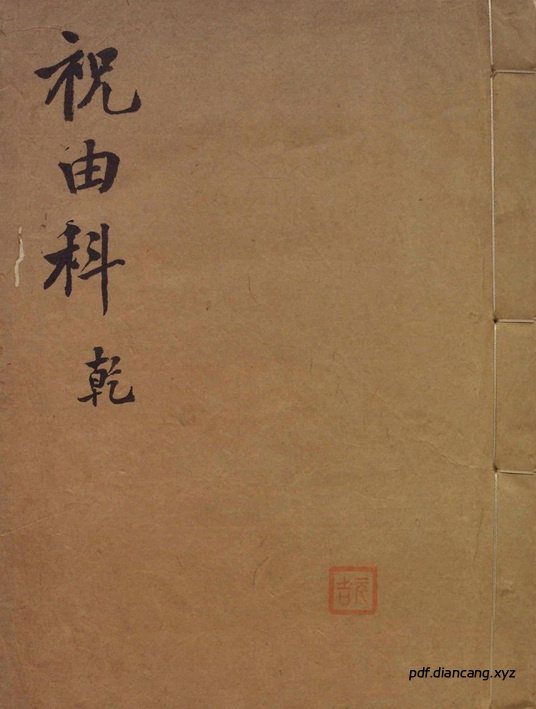 祝由科 乾
元吉
pdf.diancang.xyz